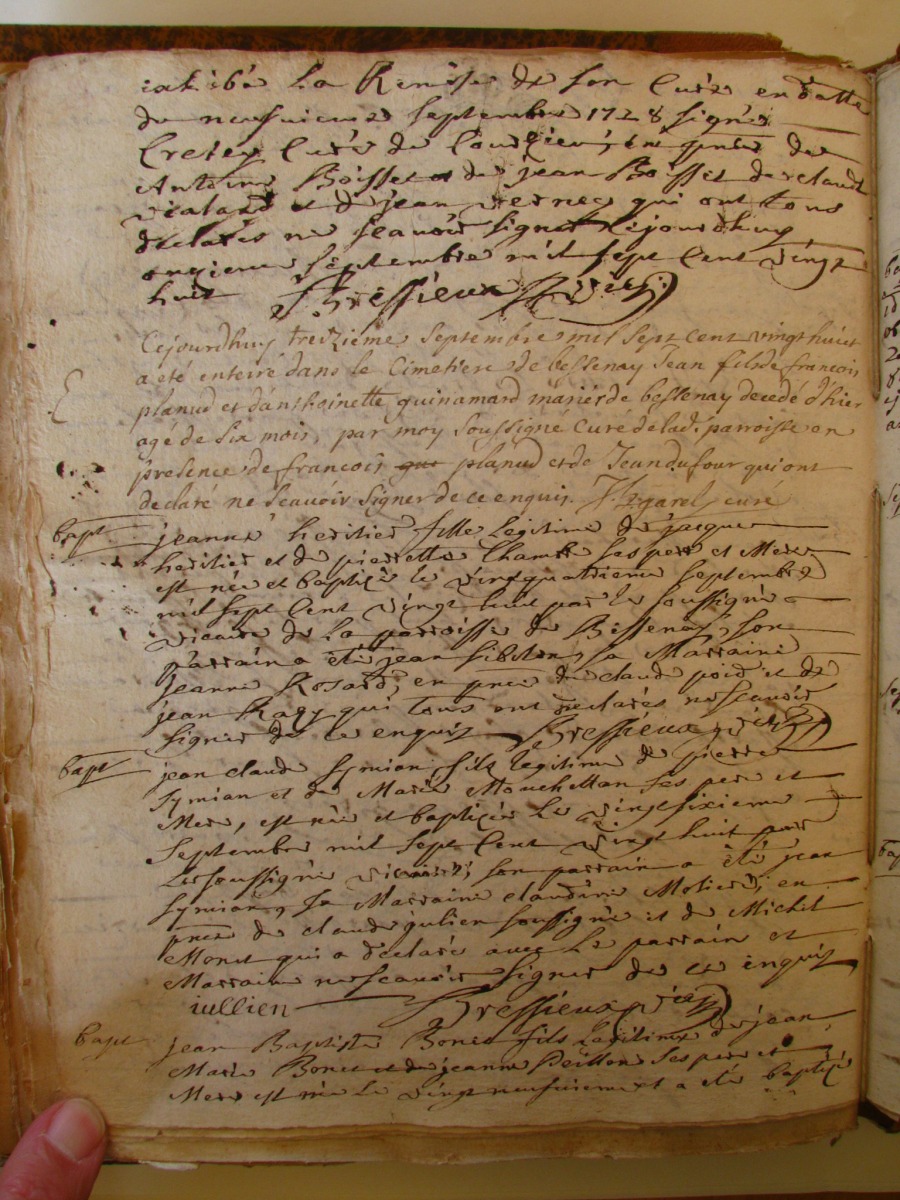 La Remise de son Curé en datte
du neufuieme Septembre 1728 signé
Curé de en pnce de
Antoine Boisset et de jean Boisset de claude
et de jean qui ont tous
declarés ne scauoir signer cejourdhuy
onzieme Septembre mil sept Cent vingt
huit Bressieux vic
Cejourdhuy treizième Septembre mil Sept cent vingt huict
a eté enterré dans le Cimetiere de bessenay Jean fils de francois
planud et danthoinette guinamard mariés de bessenay decedé d'hier
agé de Six mois, par moy Soussigné Curé de lad. parroisse en
presence de francois planud et de Jean dufour qui ont
declaré ne Scauoir Signer de ce enquis. curé
bapt jeanne heritier fille Legitime de jacque
heritier et de pierrette Chambe ses pere et Mere
est née et baptizée le vingtquatrieme septembre
mil sept Cent vingt huit par le soussigné
vicaire de La parroisse de Bessenay, son
parrain a été jean sa Marraine
jeanne en pnce de claude et de
jean Ragy qui tous ont declarés ne scauoir
signer de ce enquis Bressieux vic
bapt jean claude Symian fils legitime de pierre
Symian et de Marie Mouchettan ses pere et
Mere, est née et baptizée Le vingtsixieme
Septembre mil sept Cent vingt huit par
Le soussigné vicaire, son parrain a été jean
Symian, Sa Marraine claudine en
pnce de claude julien soussigné et de Michel
Monet qui a declaré avec Le parrain et
Marraine ne scauoir signer de ce enquis
iullien Bressieux vic
bapt jean Baptiste Bonet fils Legitime de jean
Marie Bonet et de jeanne Peillon Ses pere et
Mere est née Le vingt neufuieme et a été baptizé